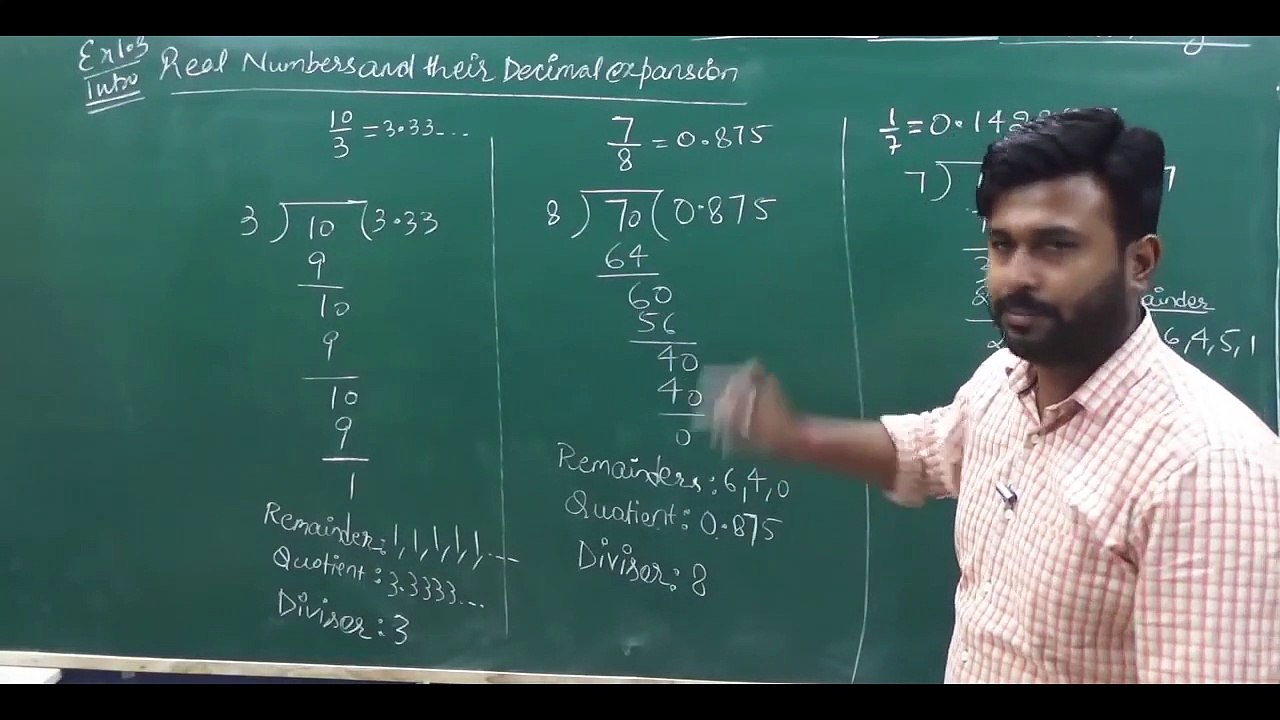 Ex 1.3
Intro
Real Numbers and their Decimal expansion
10/3 = 3.33...
3 ) 10 ( 3.33
9
10
9
10
9
1
Remainder: 1, 1, 1, 1, 1, ...
Quotient: 3.3333...
Divisor: 3
7/8 = 0.875
8 ) 70 ( 0.875
64
60
56
40
40
0
Remainders: 6, 4, 0
Quotient: 0.875
Divisor: 8
1/7 = 0.142
7 )
6, 4, 5, 1